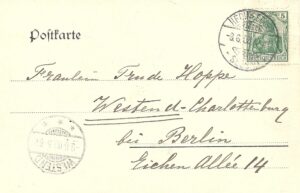 Postkarte
5
Fräulein Trude Hoppe
Westend-Charlottenburg
bei Berlin
Eichen Allée 14